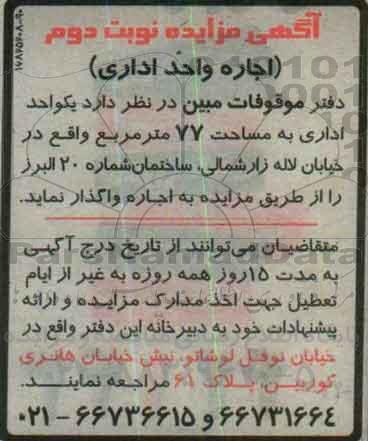 آگهی مزایده نوبت دوم
(اجاره واحد اداری)
دفتر موقوفات مبین در نظر دارد یکواحد
اداری به مساحت ۷۷ مترمربع واقع در
خیابان لاله زارشمالی، ساختمان‌شماره ۲۰ البرز
را از طریق مزایده به اجاره واگذار نماید.
متقاضیان می‌توانند از تاریخ درج آگهی
به مدت ۱۵روز همه روزه به غیر از ایام
تعطیل جهت اخذ مدارک مزایده و ارائه
پیشنهادات خود به دبیرخانه این دفتر واقع در
خیابان نوفل لوشاتو، نبش خیابان هانری
کوربین، پلاک ۶۱ مراجعه نمایند.
۶۶۷۳۱۶۶۴ و ۶۶۷۳۶۶۱۵ - ۰۲۱